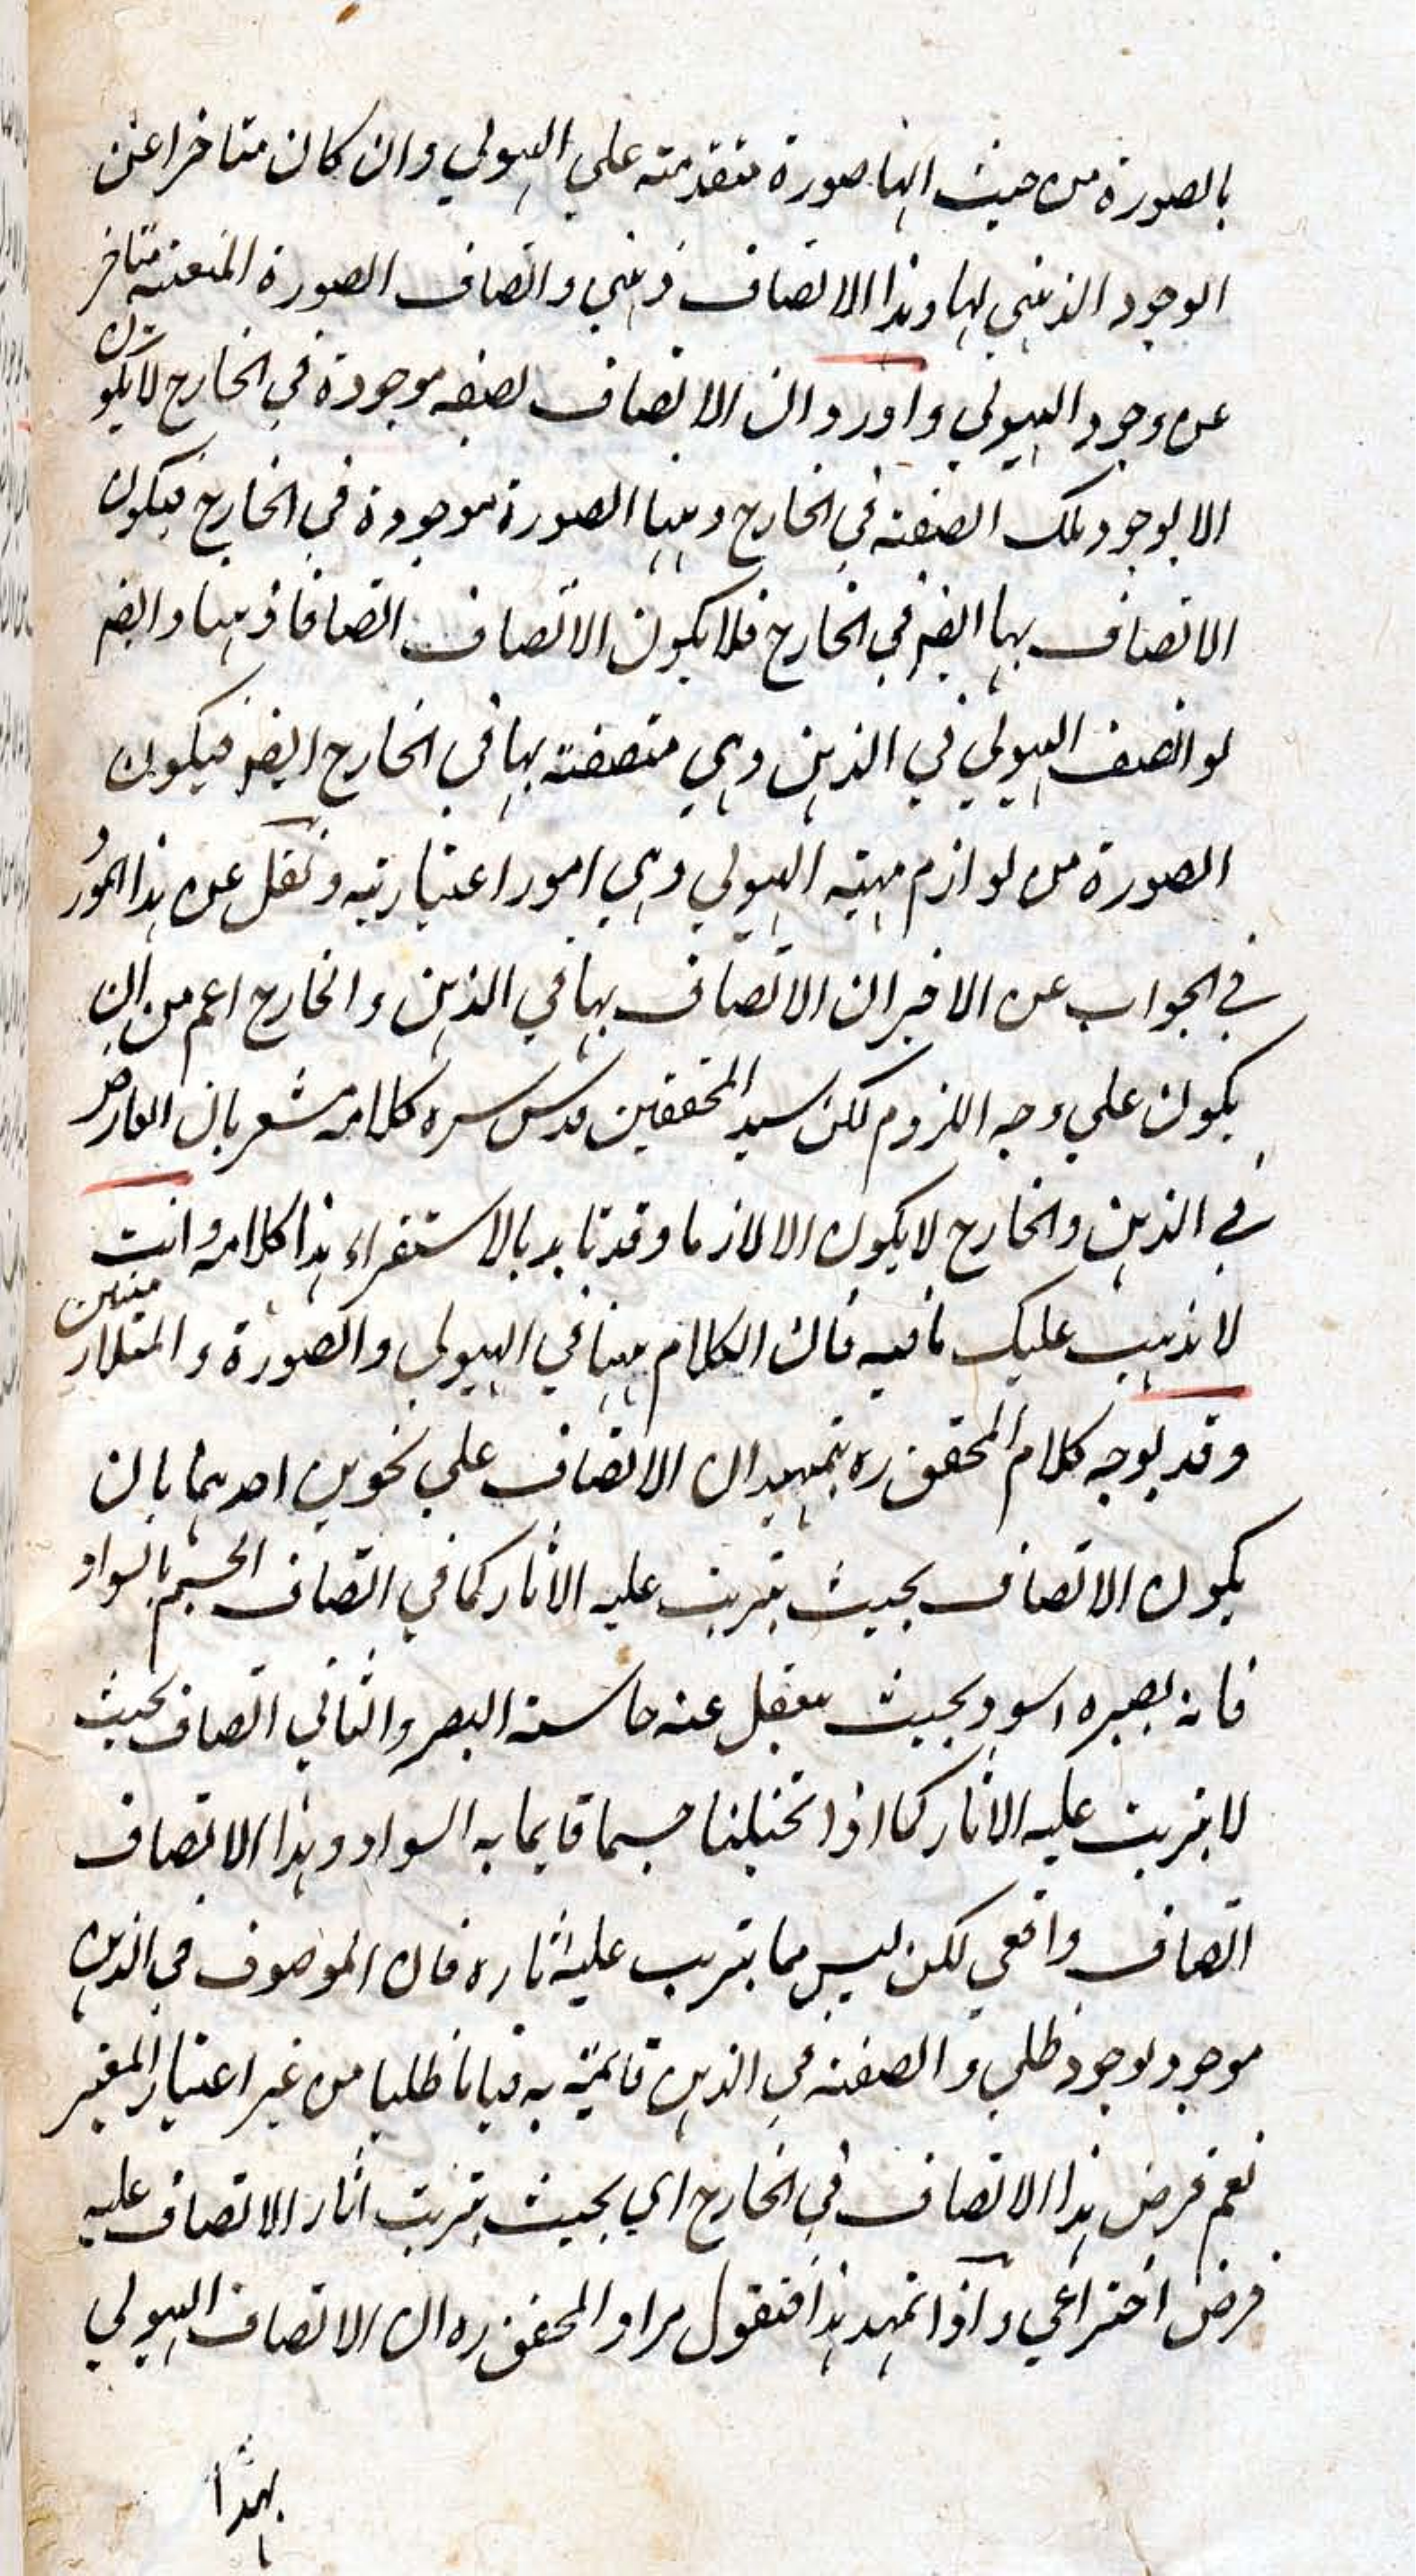 بالصورة من حيث انها صورة متقدمة علي الهيولي وان كان متاخرا عن
الوجود الذهني لها وهذا الاتصاف ذهني واتصاف الصورة المتعينة متاخر
عن وجود الهيولي واورد ان الاتصاف لصفه موجودة في الخارج لا يكون
الا لوجود تلك الصفة في الخارج وههنا الصورة موجودة في الخارج فيكون
الاتصاف بها ايضم في الخارج فلا يكون الاتصاف اتصافا ذهنيا وايضم
لو اتصف الهيولي في الذهن وهي متصفة بها في الخارج ايضم فيكون
الصورة من لوازم مهية الهيولي وهي امور اعتبارية ونقل عن هذا
في الجواب عن الاخير ان الاتصاف بها في الذهن والخارج اعم من ان
يكون علي وجه اللزوم لكن سيد المحققين قدس سره كلامه مشعر بان العارض
في الذهن والخارج لا يكون الا لازما وقد بالاستقراء هذا كلامه وانت
لا يذهب عليك ما فيه فان الكلام ههنا في الهيولي والصورة و
وقد يوجه كلام المحقق ره بتمهيد ان الاتصاف علي نحوين احدهما بان
يكون الاتصاف بحيث يترتب عليه الاثار كما في اتصاف الجسم بالسواد
فانه يصيره اسود بحيث ينفعل عنه حاسة البصر والثاني اتصاف بحيث
لا يترتب عليه الاثار كما اذا تخيلنا جسما قايما به السواد وهذا الاتصاف
اتصاف واقعي لكن ليس مما يترتب عليه اثاره فان الموصوف في الذهن
موجود بوجود ظلي والصفة في الذهن قائمة به قياما ظليا من غير اعتبار المعتبر
نعم فرض هذا الاتصاف في الخارج اي بحيث يترتب اثار الاتصاف عليه
فرض اختراعي واذا تمهد هذا فنقول مراد المحقق ره ان الاتصاف الهيولي
بهذا